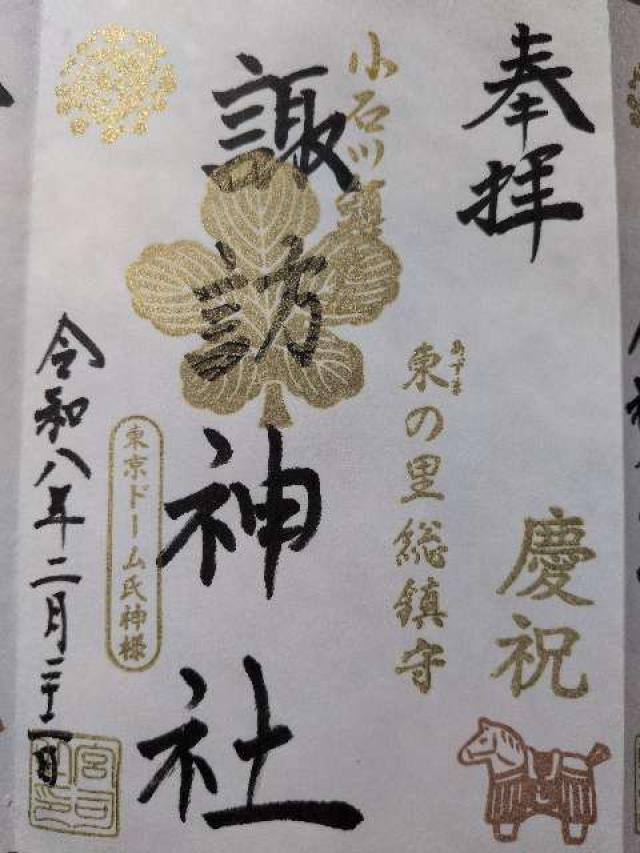 奉拝
慶祝
東の里総鎮守
あずま
小石川鎮
諏訪神社
東京ドーム氏神様
令和八年二月二十二日
宮司